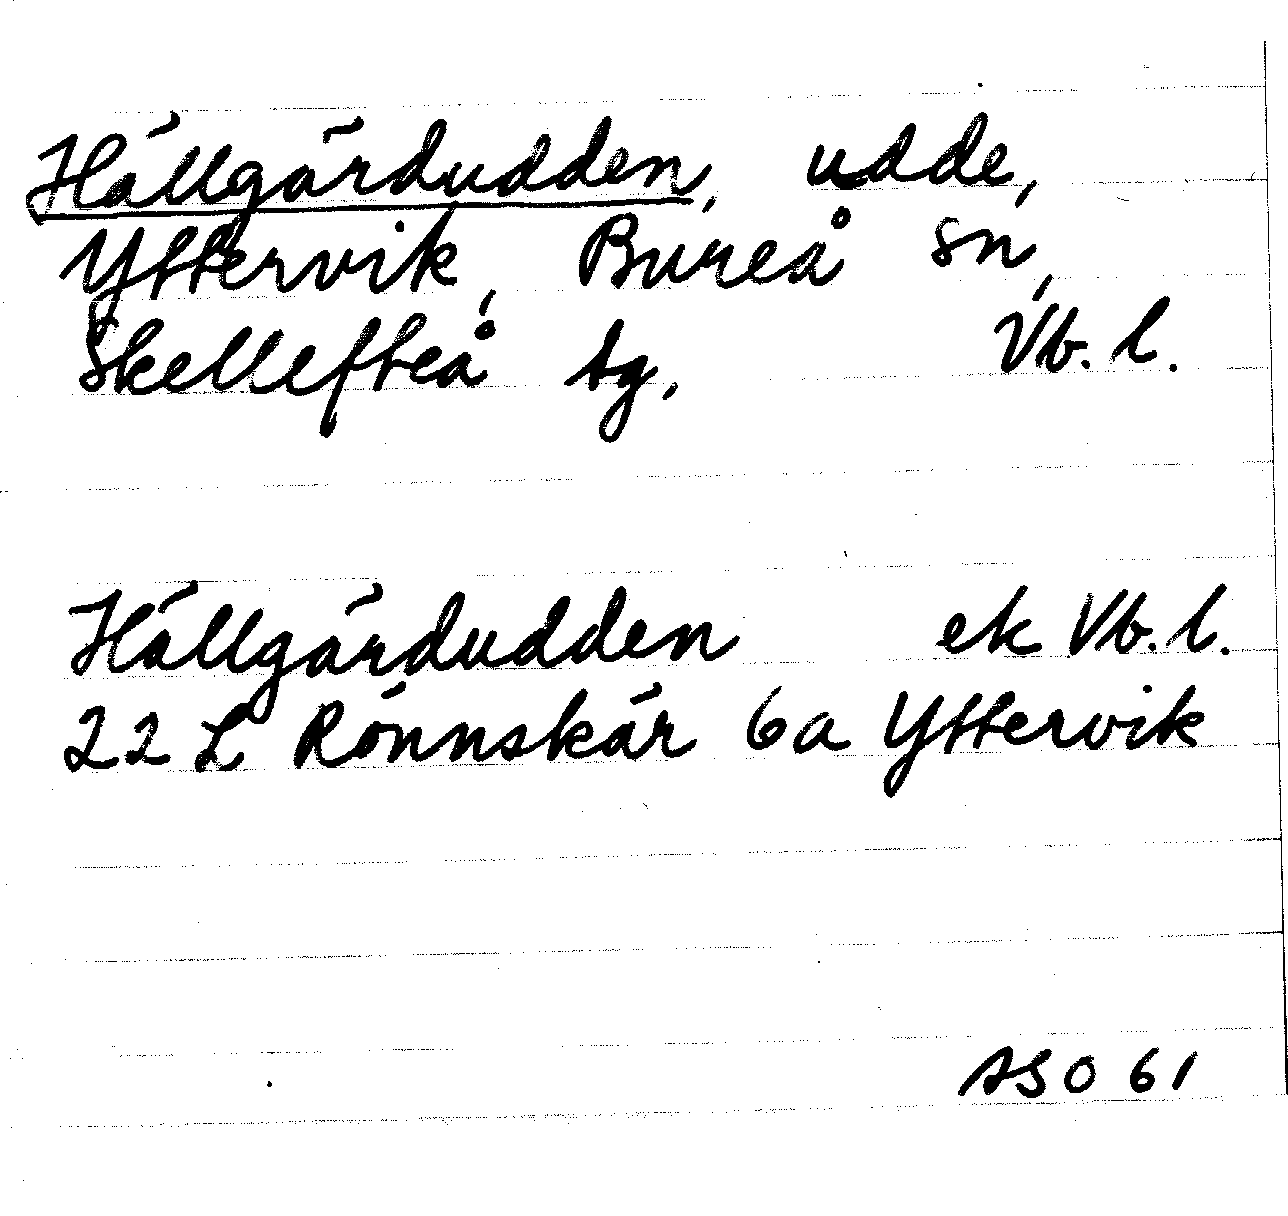 Hällgärdudden, udde,
Yttervik, Bureå sn,
Skellefteå tg. Vb. l.
Hällgärdudden ek Vb. l.
22 L Rönnskär 6a Yttervik
ASO 61